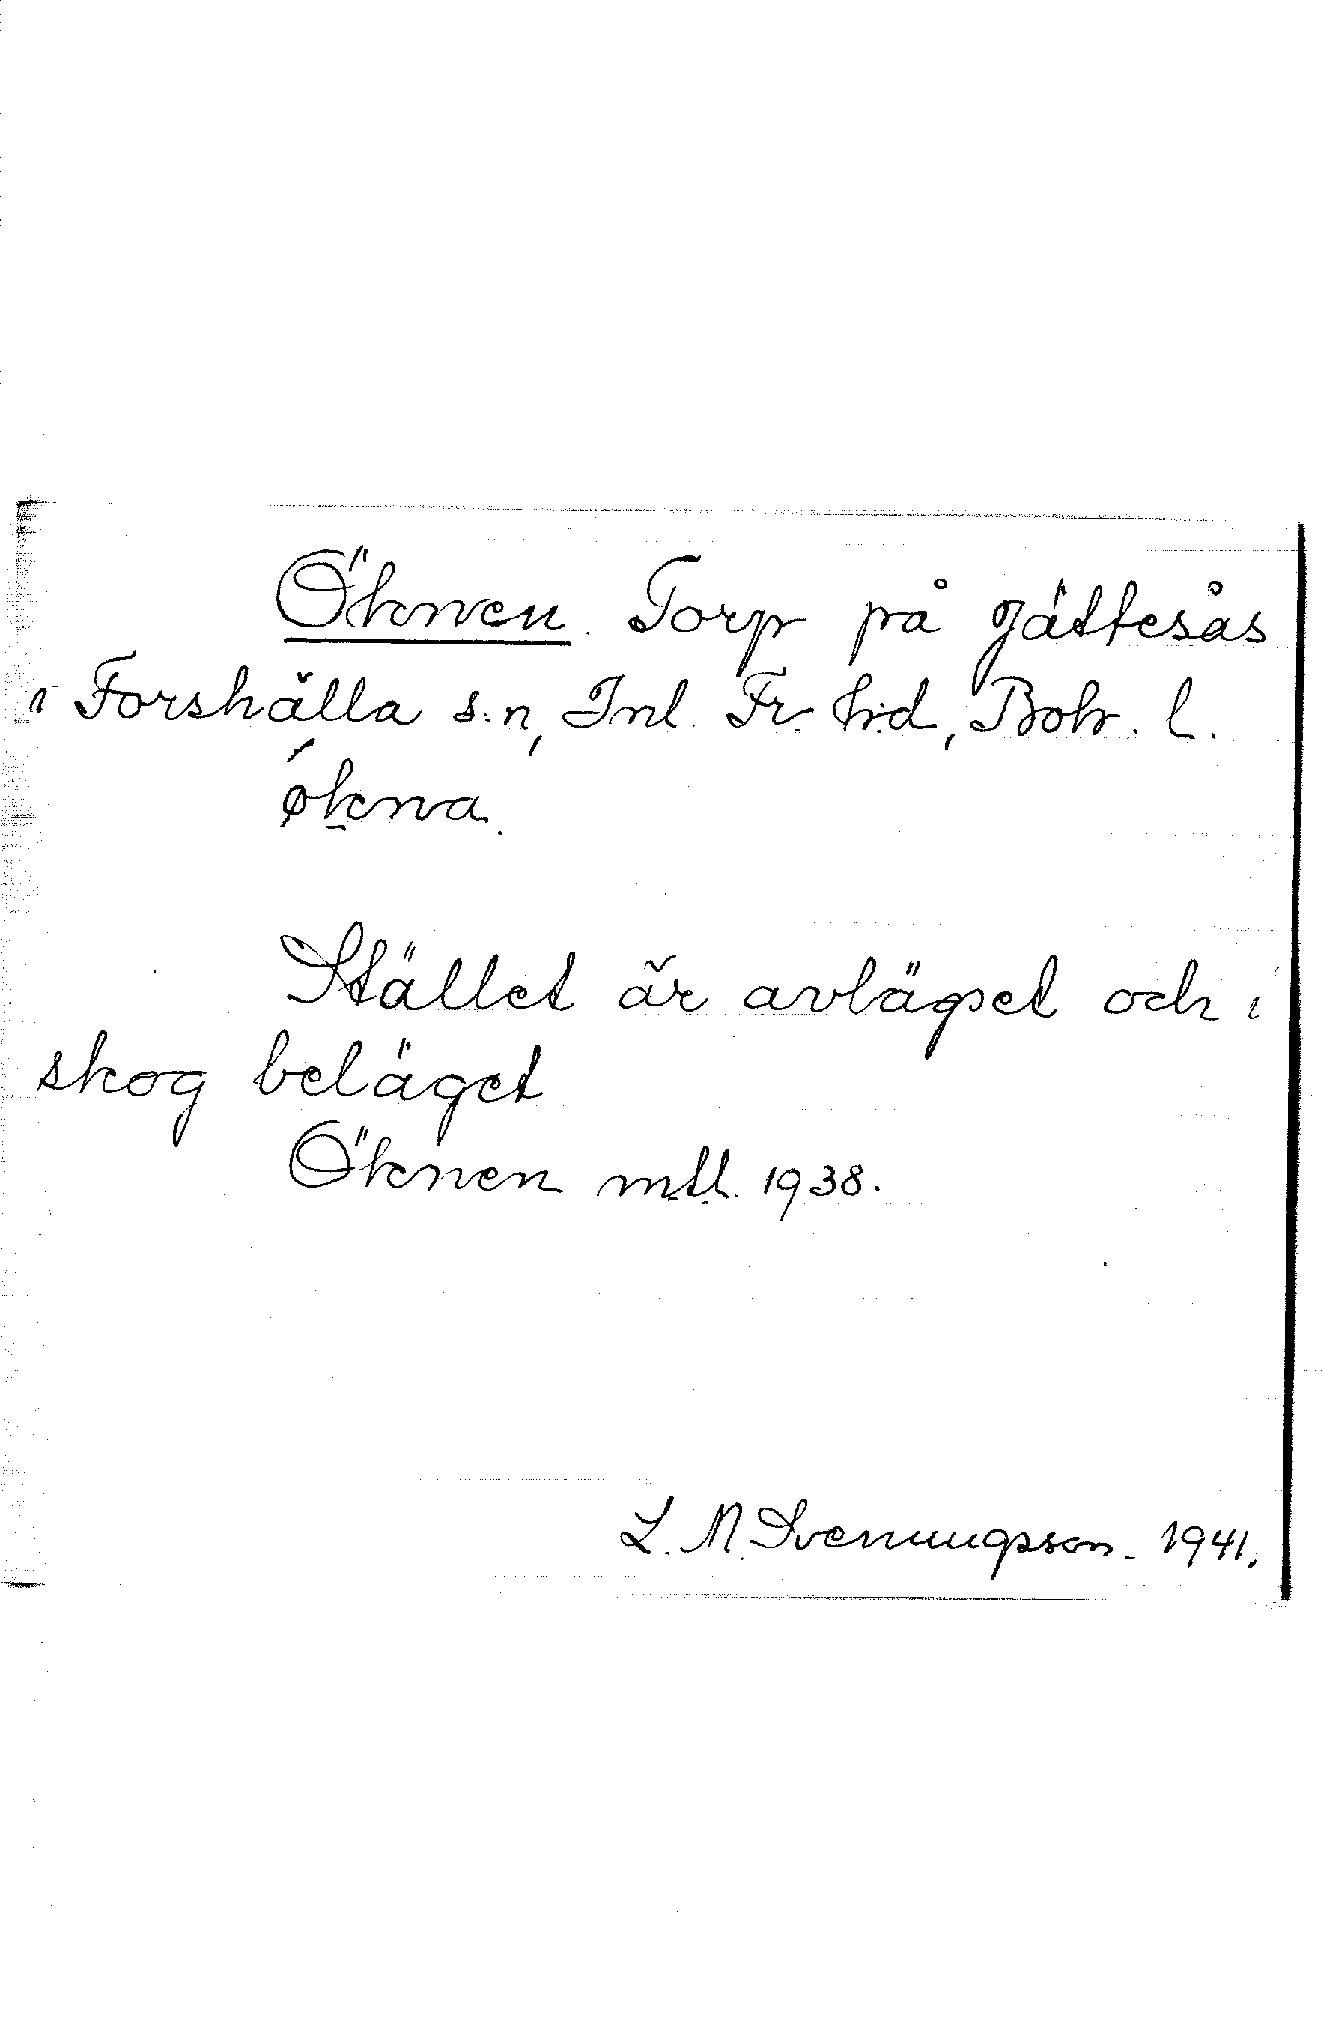 Öknen. Torp på Jättesås
i Forshälla s:n, Inl. Fr. h:d, Boh. l.
økna.
Stället är avlägset och i
skog beläget
Öknen mtl. 1938.
L. M. Svenungsson. 1941.